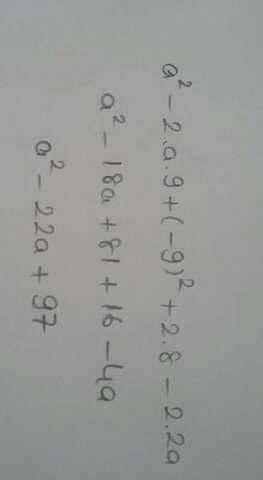 a² - 2.a.9 + (-9)² + 2.8 - 2.2a
a² - 18a + 81 + 16 - 4a
a² - 22a + 97